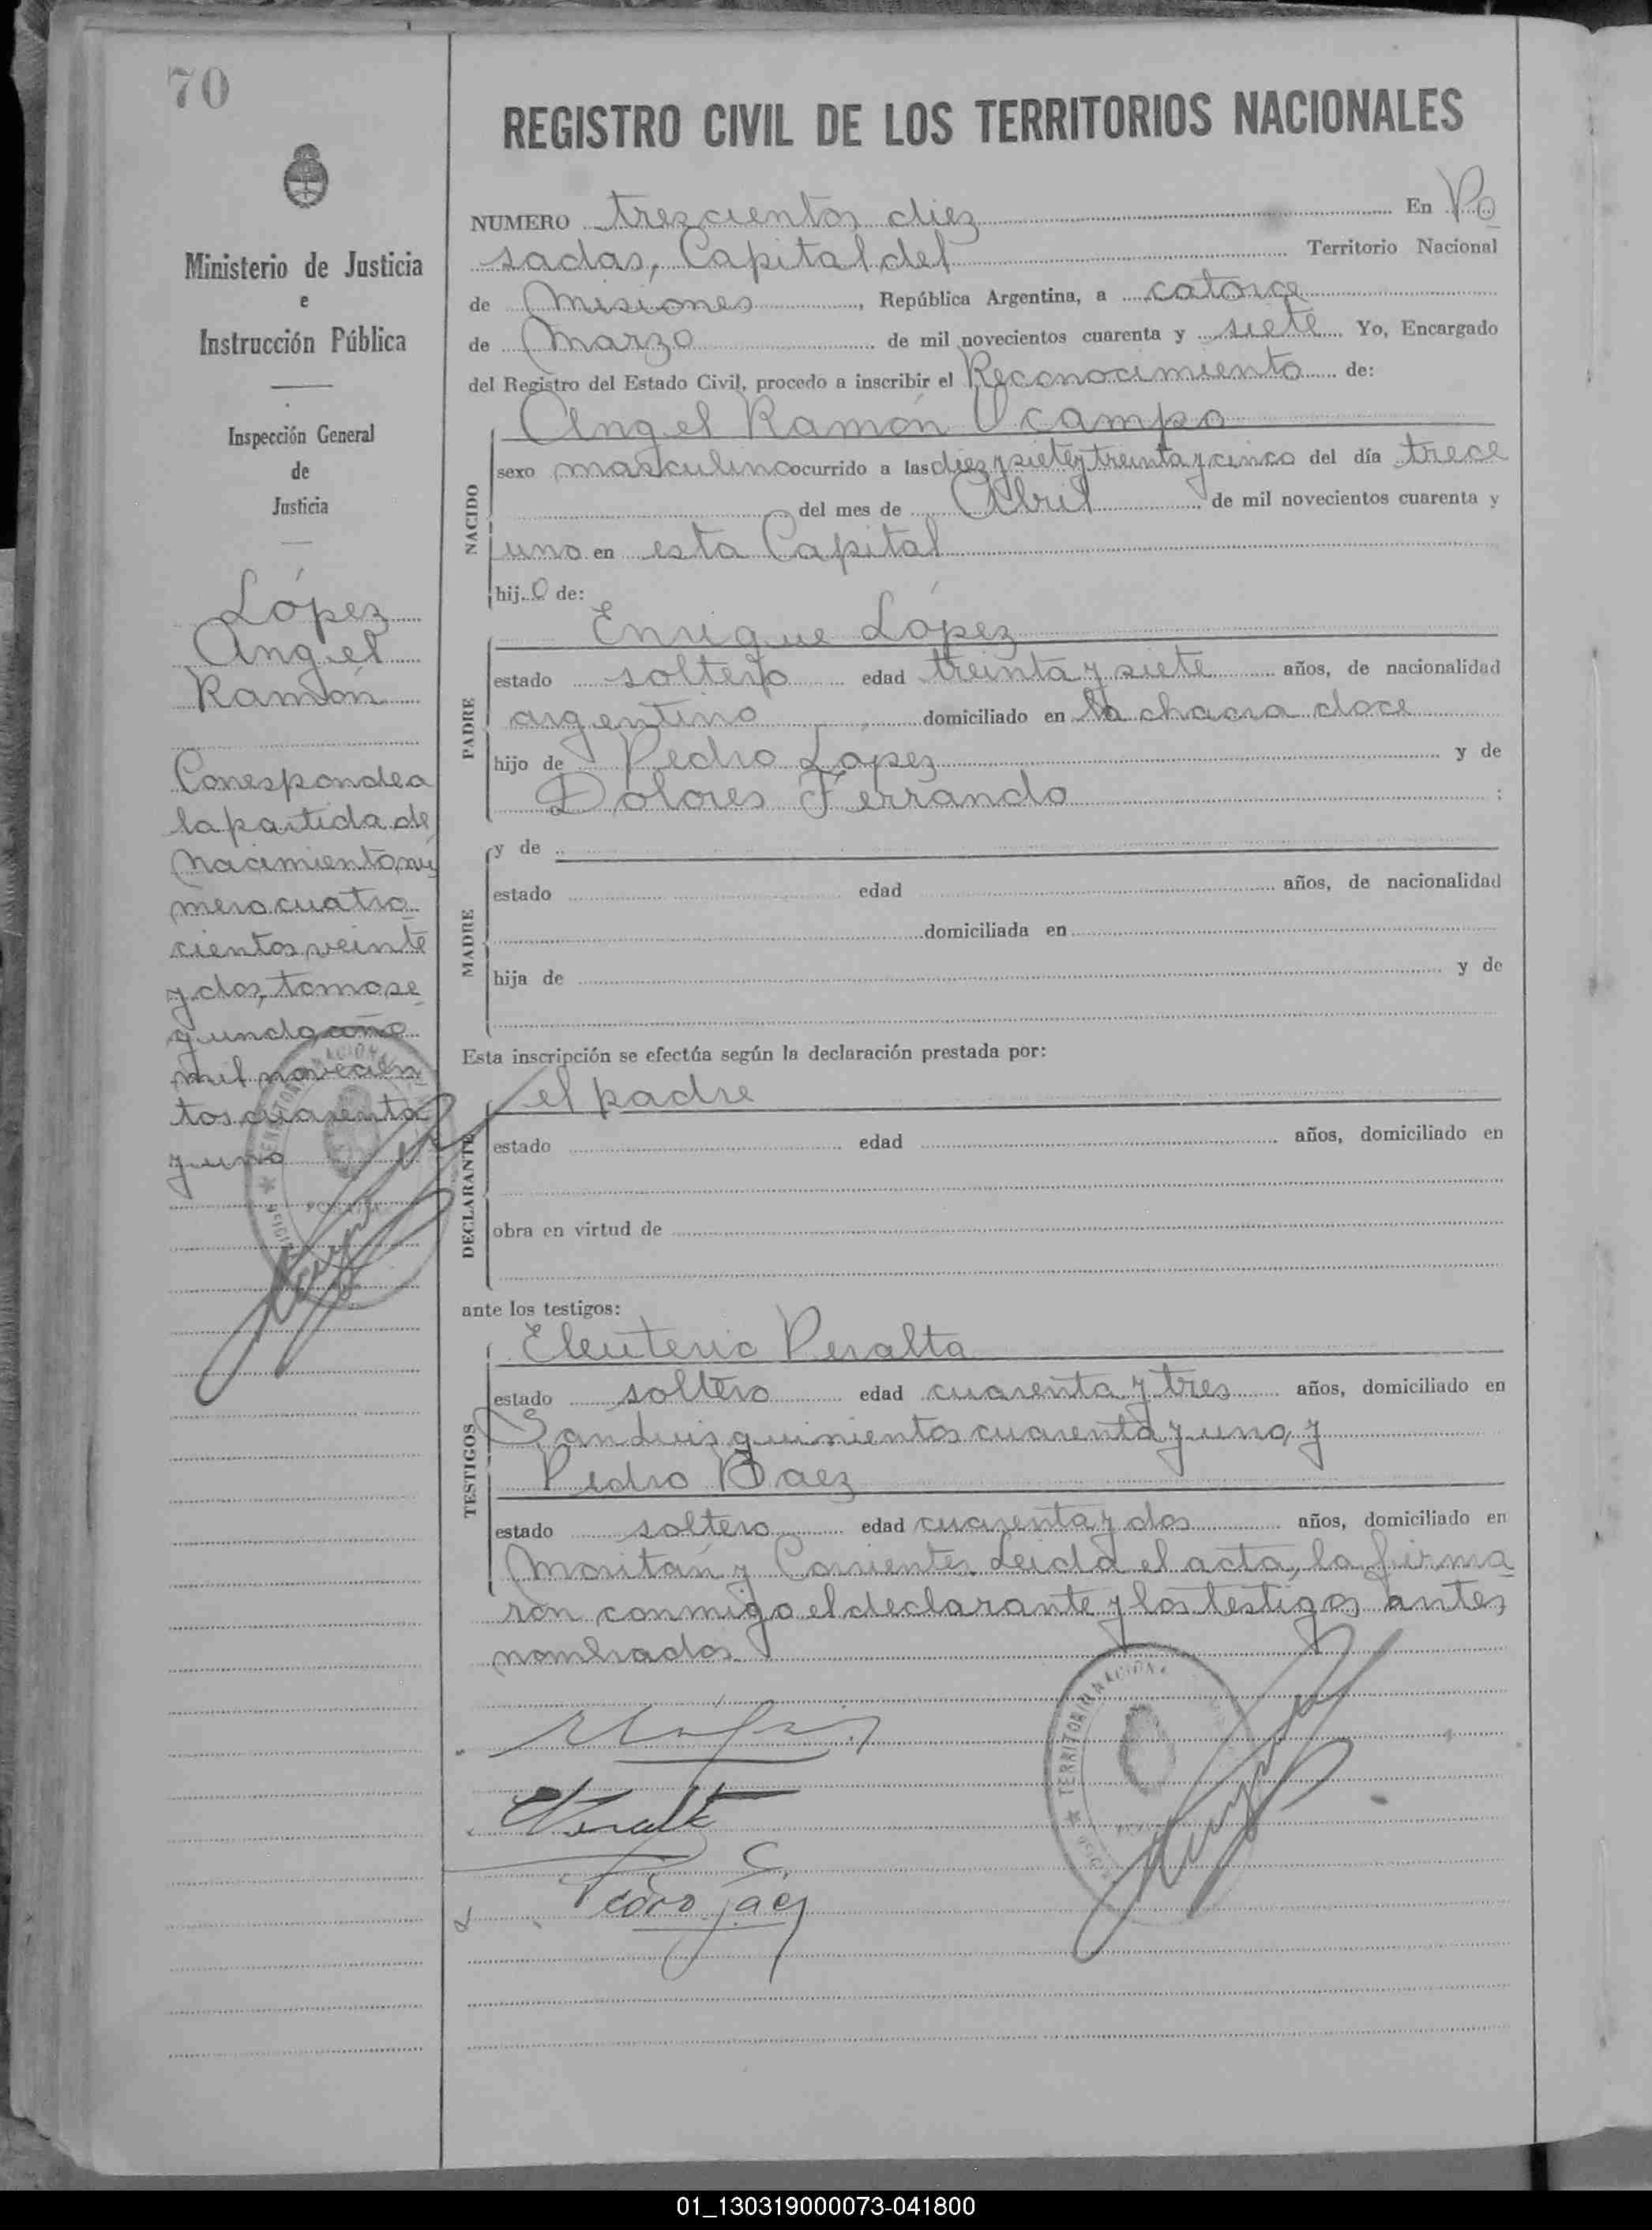 70
Ministerio de Justicia
e
Instrucción Pública
Inspección General
de
Justicia
López
Angel
Ramón
Corresponde a
la partida de
nacimiento nú
mero cuatro
cientos veinte
y dos, tomo se
gundo año
mil novecien
tos cuarenta
y uno
REGISTRO CIVIL DE LOS TERRITORIOS NACIONALES
NUMERO trescientos diez En Po
sadas, Capital del Territorio Nacional
de Misiones, República Argentina, a catorce
de Marzo de mil novecientos cuarenta y siete Yo, Encargado
del Registro del Estado Civil, procedo a inscribir el Reconocimiento de:
Angel Ramón Ocampo
NACIDO
sexo masculino ocurrido a las diez y siete y treinta y cinco del día trece
del mes de Abril de mil novecientos cuarenta y
uno en esta Capital
hijo de:
PADRE
Enrique López
estado soltero edad treinta y siete años, de nacionalidad
argentino domiciliado en la chacra doce
hijo de Pedro López y de
Dolores Ferrando ;
MADRE
y de
estado edad años, de nacionalidad
domiciliada en
hija de y de
Esta inscripción se efectúa según la declaración prestada por:
DECLARANTE
el padre
estado edad años, domiciliado en
obra en virtud de
ante los testigos:
TESTIGOS
Eleuterio Peralta
estado soltero edad cuarenta y tres años, domiciliado en
San Luis quinientos cuarenta y uno, y
Pedro Baez
estado soltero edad cuarenta y dos años, domiciliado en
y Corrientes. Leída el acta, la firma
ron conmigo el declarante y los testigos antes
nombrados.
TERRITORIO NACION
Pedro
01_130319000073-041800